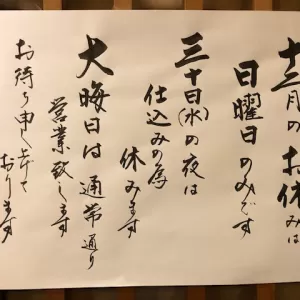 十二月のお休みは
日曜日のみです
三十日(水)の夜は
仕込みの為
休みます
大晦日は通常通り
営業致します
お待ち申し上げて
おります